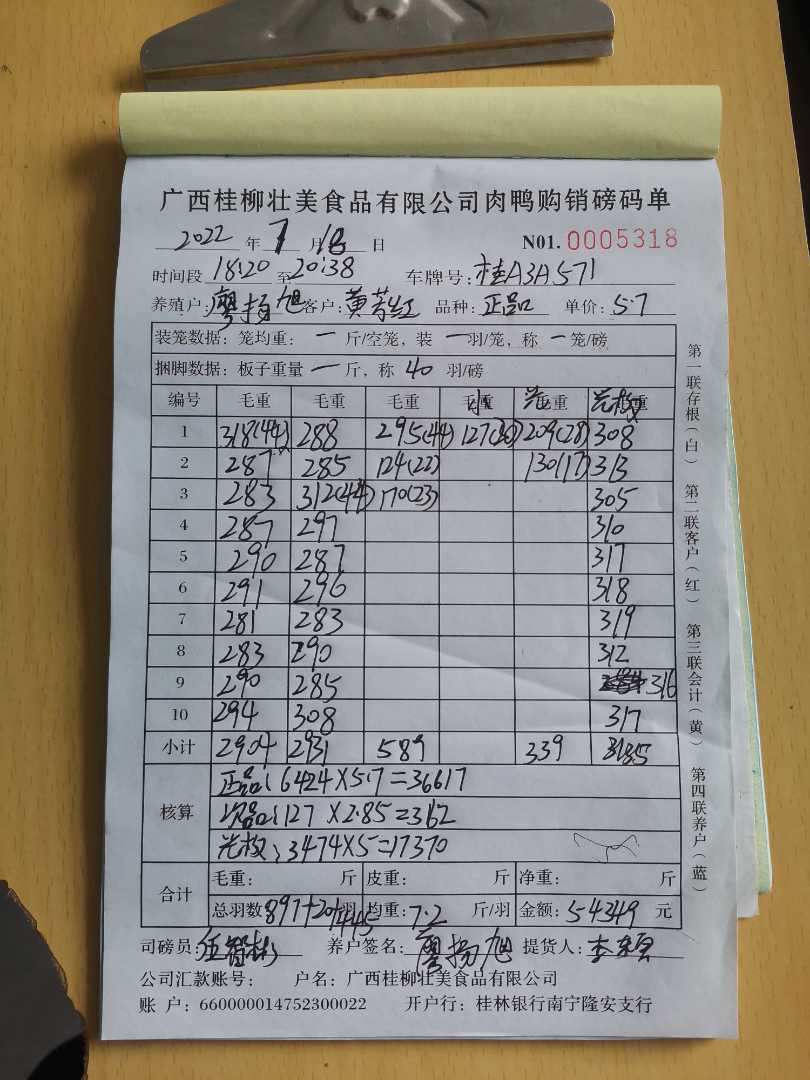 广西桂柳壮美食品有限公司肉鸭购销磅码单
2022 年 7 月 18 日 N01. 0005318
时间段 18:20 至 20:38 车牌号: 桂A3A571
养殖户: 廖扬旭 客户: 黄芳红 品种: 正品 单价: 5.7
装笼数据: 笼均重: 一 斤/空笼, 装 一 羽/笼, 称 一 笼/磅
捆脚数据: 板子重量 一 斤, 称 40 羽/磅
编号 毛重 毛重 毛重 毛重 毛重 毛重
1 318(44) 288 295(44) 127(20) 209(28) 308
2 287 285 124(22) 130(17) 313
3 283 312(44) 170(23) 305
4 287 297 310
5 290 287 317
6 291 296 318
7 281 283 319
8 283 290 312
9 290 285 316
10 294 308 317
小计 2904 2931 589 339 3135
核算
正品: 6424×5.7=36617
次品: 127×2.85=362
光枚: 3474×5=17370
合计
毛重: 斤 皮重: 斤 净重: 斤
总羽数 897+20+445 羽 均重: 7.2 斤/羽 金额: 54349 元
司磅员: 养户签名: 廖扬旭 提货人:
公司汇款账号: 户名: 广西桂柳壮美食品有限公司
账 户: 660000014752300022 开户行: 桂林银行南宁隆安支行
第一联存根(白) 第二联客户(红) 第三联会计(黄) 第四联养户(蓝)